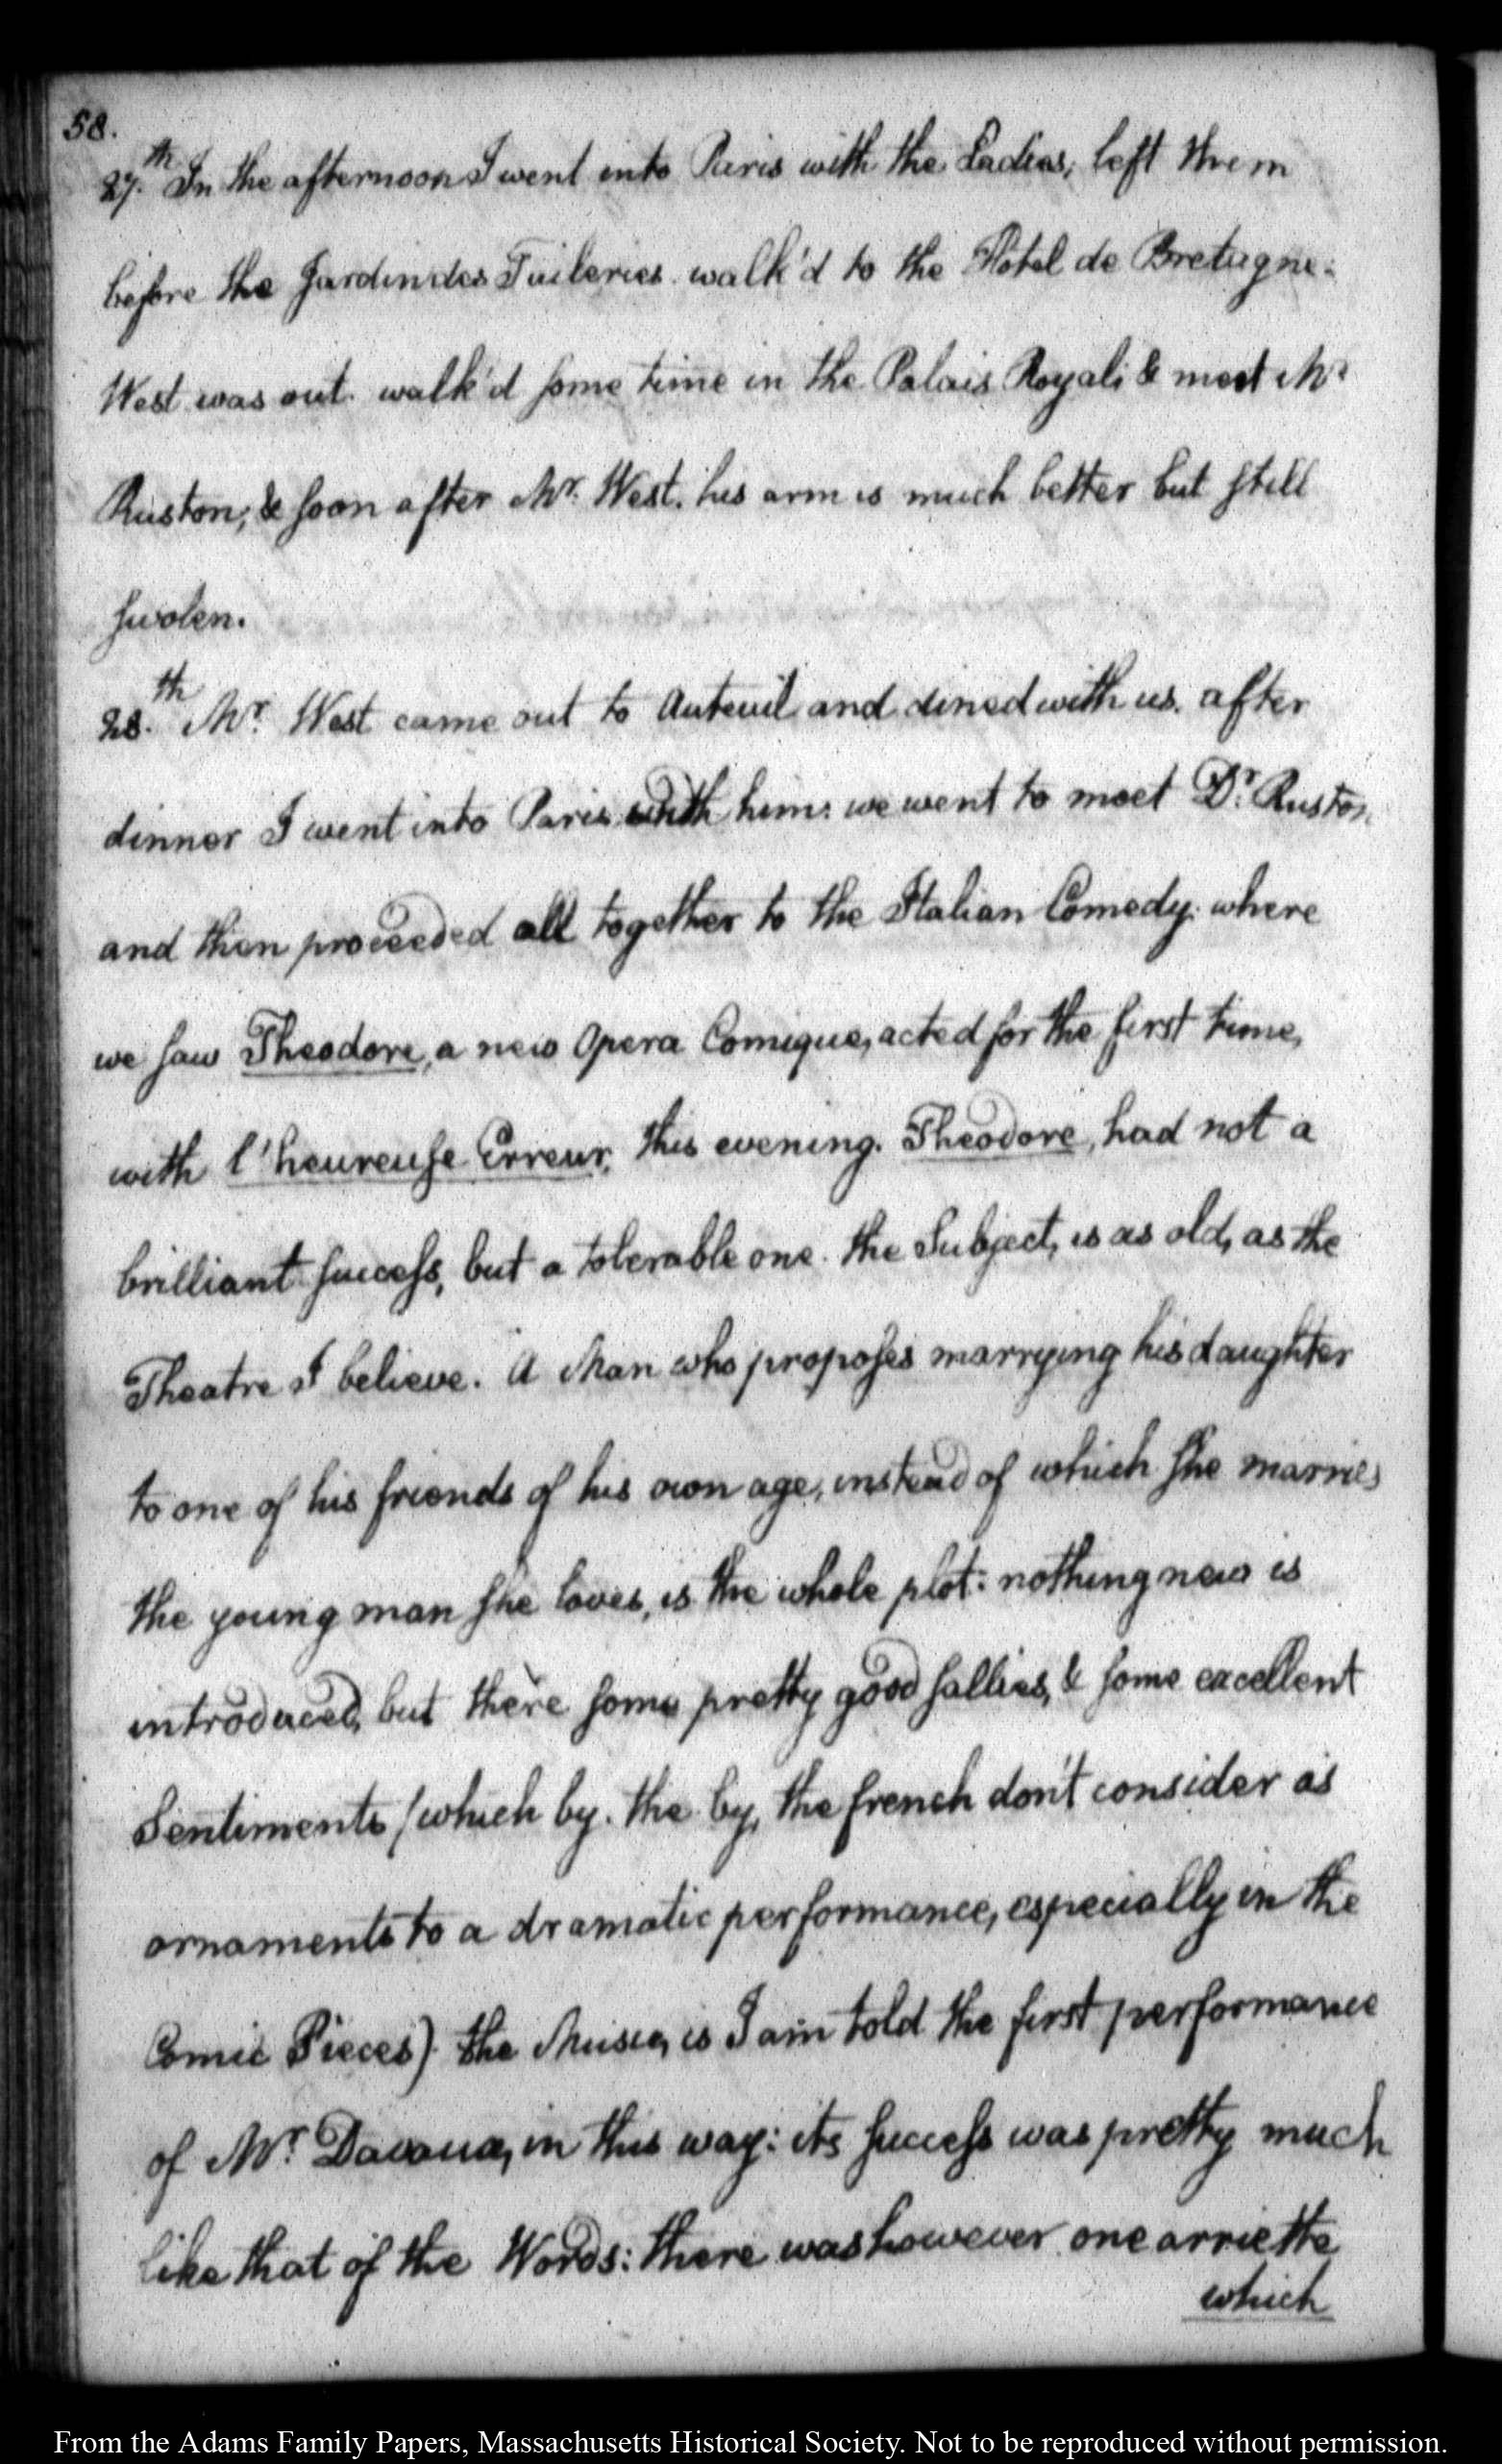 58.
27.th In the afternoon I went into Paris with the Ladies, left them
before the Jardin des Tuileries. walk'd to the Hôtel de Bretagne.
West was out. walk'd some time in the Palais Royal: & meet Mr.
Ruston; & soon after Mr. West. his arm is much better but still
swolen.
28.th Mr. West came out to Auteuil and dined with us. after
dinner I went into Paris with him: we went to meet Dr. Ruston
and then proceeded all together to the Italian Comedy: where
we saw Theodore, a new Opera Comique, acted for the first time,
with l'heureuse Erreur, this evening. Theodore, had not a
brilliant success, but a tolerable one. the Subject, is as old, as the
Theatre I believe. A Man who proposes marrying his daughter
to one of his friends of his own age, instead of which she marries
the young man she loves, is the whole plot: nothing new is
introduced, but there some pretty good sallies, & some excellent
Sentiments (which by. the by, the french don't consider as
ornaments to a dramatic performance, especially in the
Comic Pieces). the Music, is I am told the first performance
of Mr. Davaux, in this way: its success was pretty much
like that of the Words: there was however one arriette
which
From the Adams Family Papers, Massachusetts Historical Society. Not to be reproduced without permission.